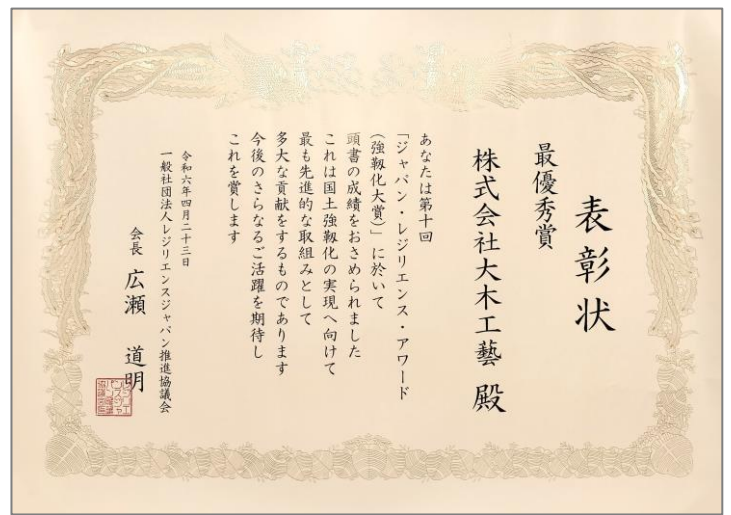 表彰状
最優秀賞
株式会社大木工藝 殿
あなたは第十回
「ジャパン・レジリエンス・アワード
(強靱化大賞)」に於いて
頭書の成績をおさめられました
これは国土強靱化の実現へ向けて
最も先進的な取組みとして
多大な貢献をするものであります
今後のさらなるご活躍を期待し
これを賞します
令和六年四月二十三日
一般社団法人レジリエンスジャパン推進協議会
会長 広瀬 道明